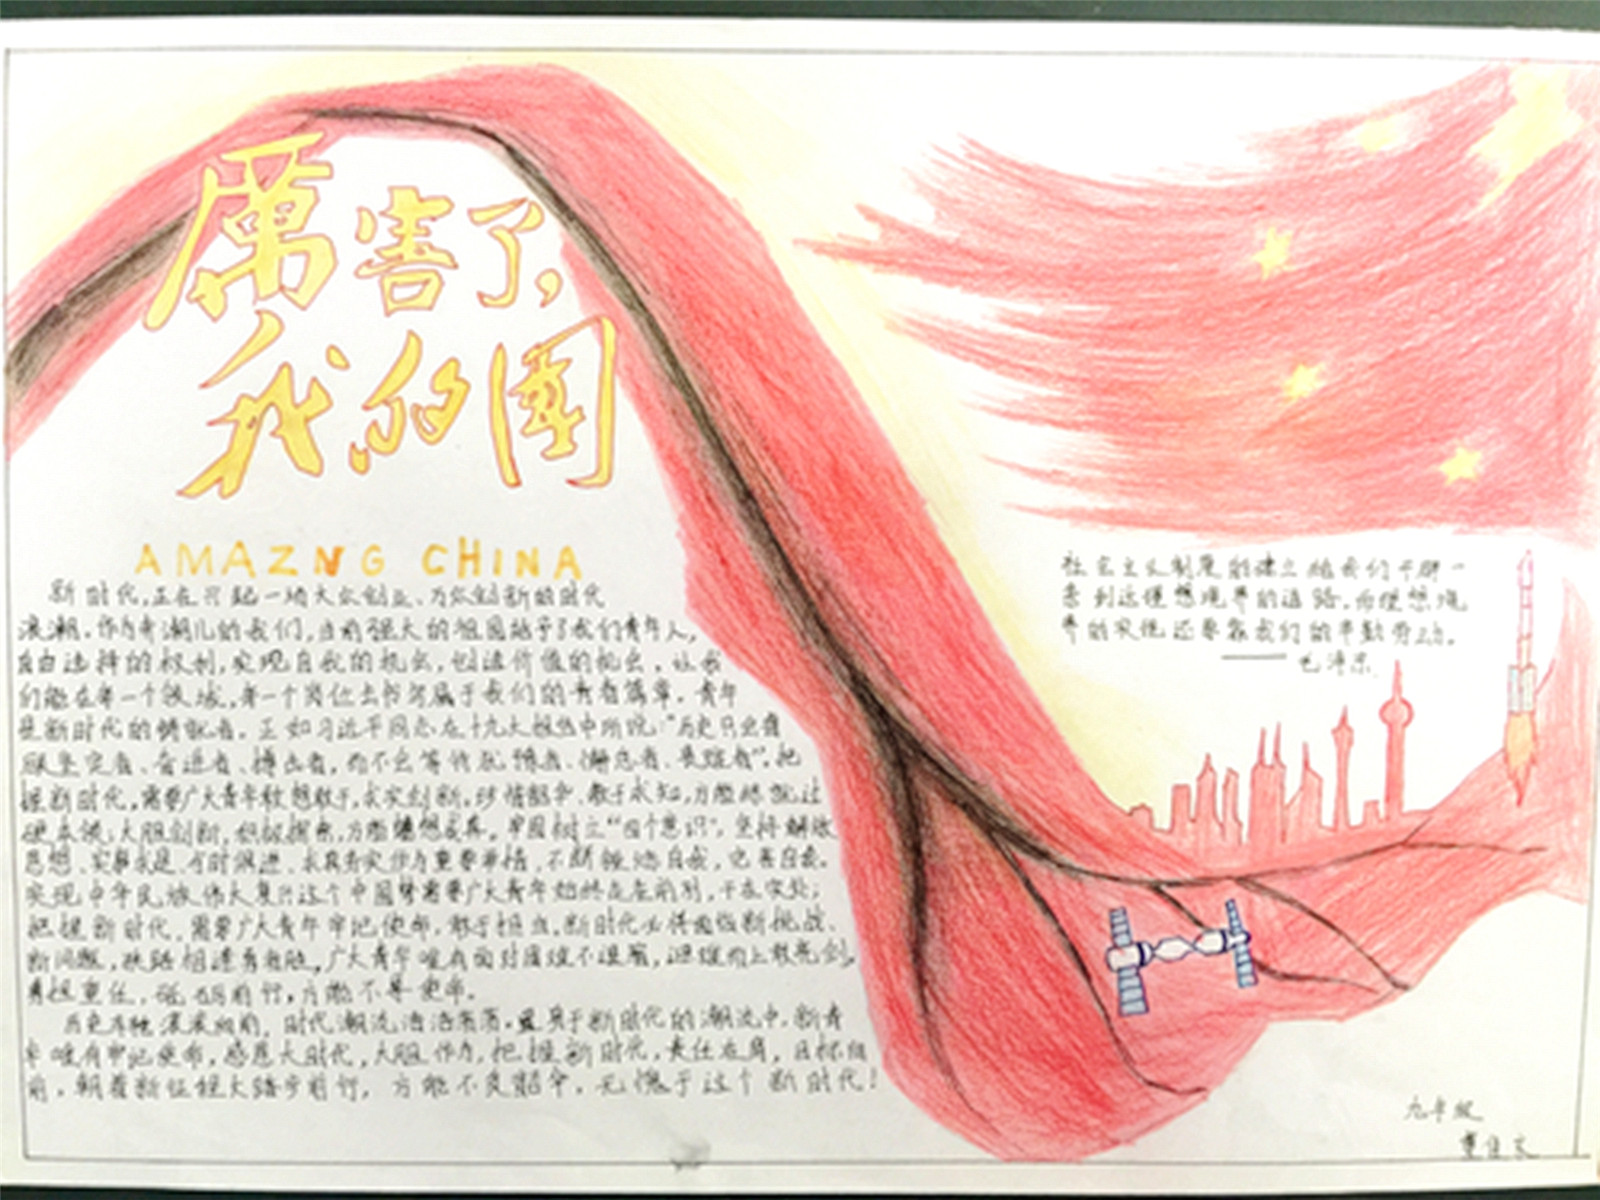 厲害了，
我的國
AMAZNG CHINA
新时代，正在兴起一场大众创业、万众创新的时代
浪潮。作为弄潮儿的我们，当前强大的祖国给予了我们青年人，
自由选择的权利，实现自我的机会，创造价值的机会，让我
们能在每一个领域，每一个岗位去书写属于我们的青春篇章。青年
是新时代的 者。正如习近平同志在十九大报告中所说："历史只会眷
顾坚定者、奋进者、搏击者，而不会等待犹豫者、懈怠者、畏难者"。把
握新时代，需要广大青年敢想敢干，求实创新，
硬本领；大胆创新，积极探索，方能 想成真，牢固树立"四个意识"，坚持解放
思想、实事求是、与时俱进、求真务实作为重要 ，不断 自我，完善自我。
实现中华民族伟大复兴这个中国梦需要广大青年始终走在前列，干在实处；
把握新时代，需要广大青年牢记使命，敢于担当，新时代必将面临新挑战、
新问题，狭路相逢勇者胜，广大青年唯有面对困难不退缩，迎难而上敢亮剑，
勇担重任，砥砺前行，方能不辱使命。
历史车轮滚滚向前，时代潮流浩浩荡荡。置身于新时代的潮流中，新青
年唯有牢记使命，感恩大时代，大胆作为，把握新时代，责任在肩，目标在
前，朝着新征程大踏步前行，方能不负韶华，无愧于这个新时代！
社会主义制度的建立给我们开辟一
条到达理想境界的道路，而理想境
界的实现还要靠我们的辛勤劳动。
——毛泽东
九年级